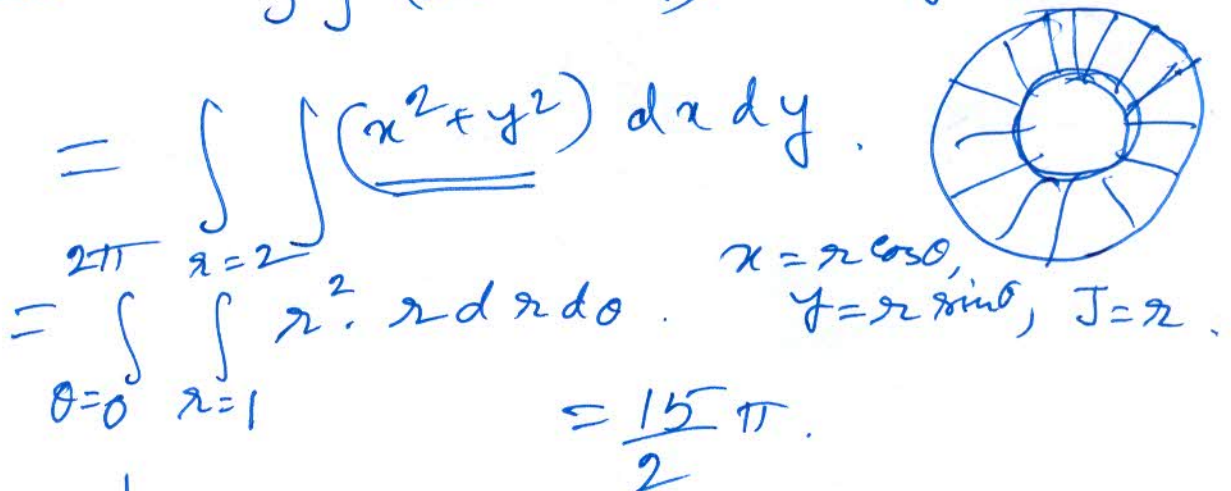 = ∫ ∫ (x² + y²) dx dy.
= ∫_{θ=0}^{2π} ∫_{r=1}^{r=2} r². r dr dθ. x = r cosθ,
y = r sinθ, J = r.
= 15/2 π.